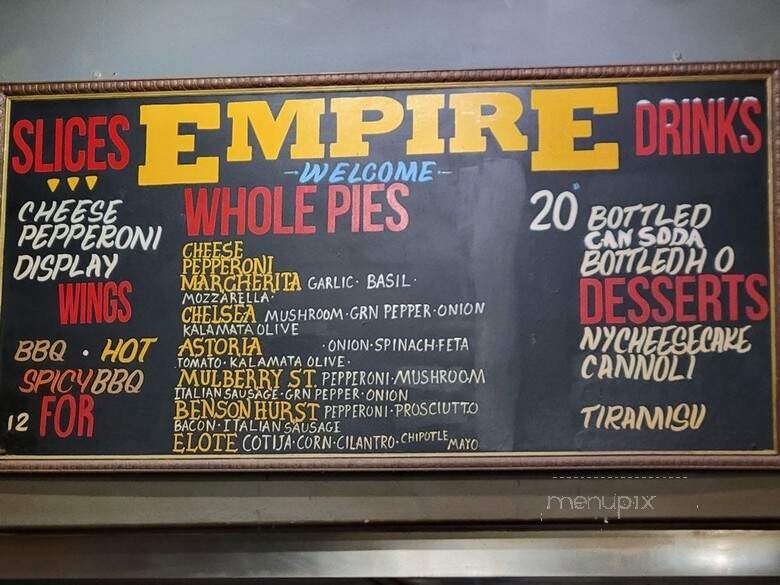 EMPIRE
-WELCOME-
SLICES
CHEESE
PEPPERONI
DISPLAY
WINGS
BBQ · HOT
SPICY BBQ
12 FOR
WHOLE PIES
20"
CHEESE
PEPPERONI
MARGHERITA GARLIC · BASIL ·
MOZZARELLA ·
CHELSEA MUSHROOM · GRN PEPPER · ONION
KALAMATA OLIVE
ASTORIA · ONION · SPINACH · FETA
TOMATO · KALAMATA OLIVE ·
MULBERRY ST. PEPPERONI · MUSHROOM
ITALIAN SAUSAGE · GRN PEPPER · ONION
BENSONHURST PEPPERONI · PROSCIUTTO
BACON · ITALIAN SAUSAGE
ELOTE COTIJA · CORN · CILANTRO · CHIPOTLE MAYO
DRINKS
BOTTLED
CAN SODA
BOTTLED H O
DESSERTS
NY CHEESECAKE
CANNOLI
TIRAMISU
menupix